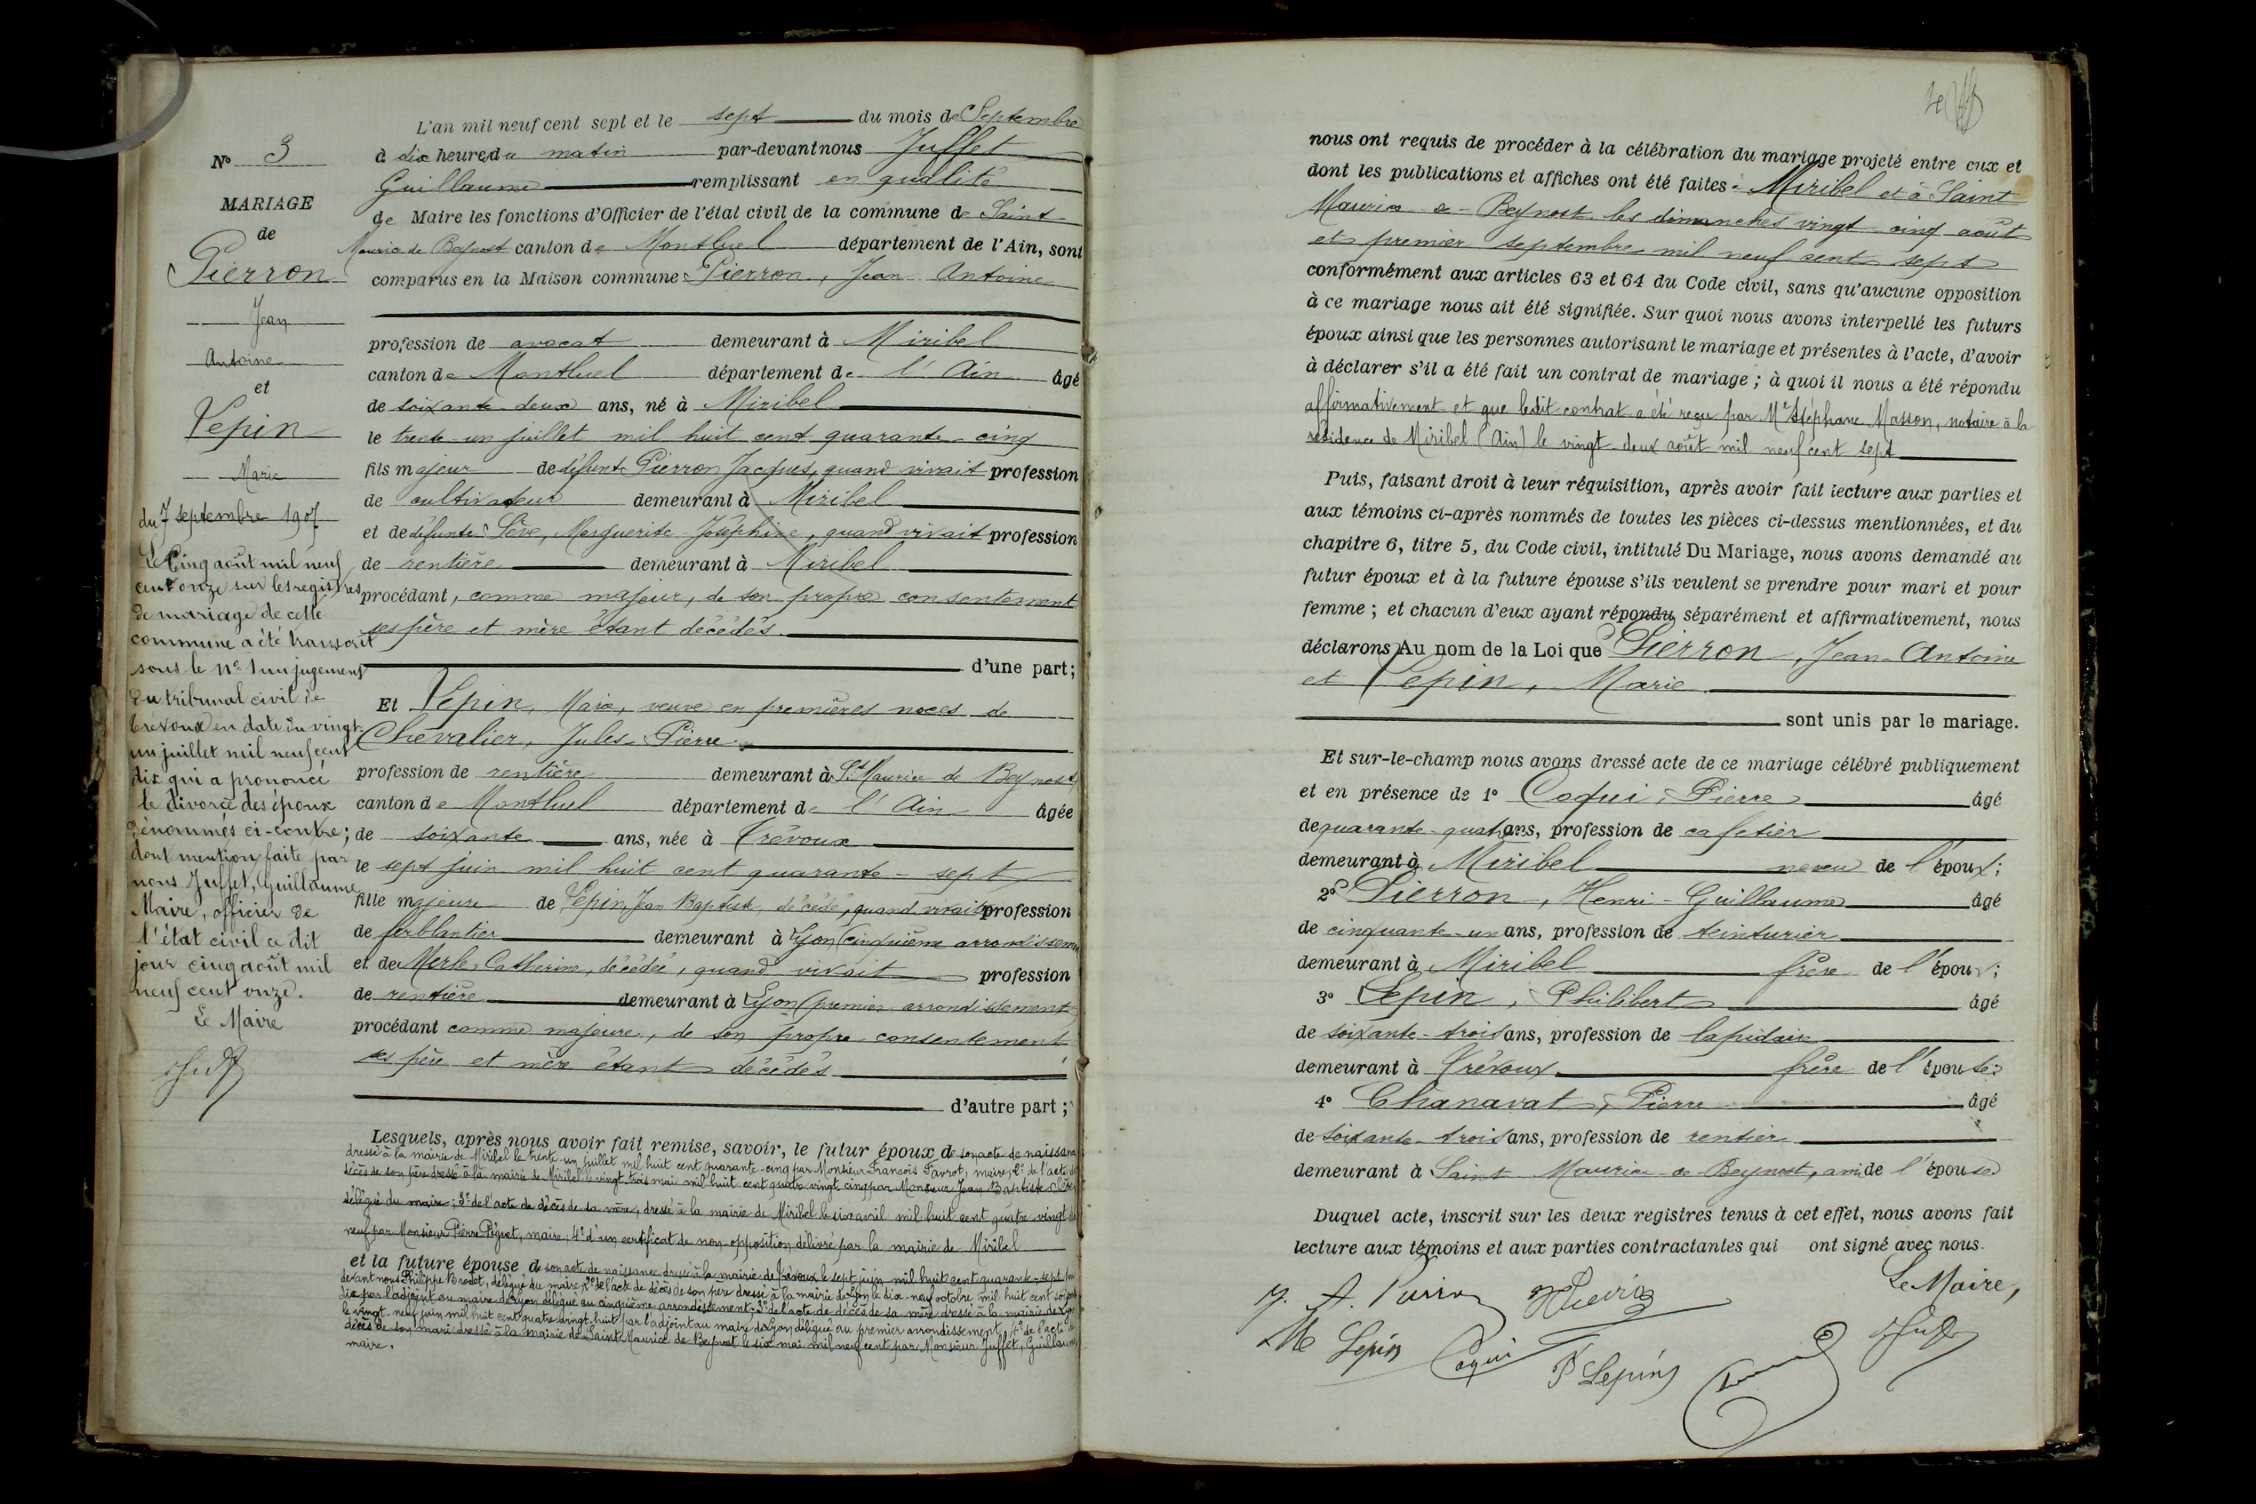 N° 3
MARIAGE
de
Pierron
Jean
Antoine
et
Lépin
Marie
du 7 septembre 1907
Le Cinq août mil neuf
cent onze sur les registres
de mariage de cette
commune a été transcrit
sous le n° 1 un jugement
du tribunal civil de
Trévoux en date du vingt-
un juillet mil neuf cent
dix qui a prononcé
le divorce des époux
dénommés ci-contre;
dont mention faite par
nous Juffet, Guillaume
Maire, officier de
l'état civil ce dit
jour cinq août mil
neuf cent onze.
Le Maire
L'an mil neuf cent sept et le sept du mois de Septembre
à dix heures du matin par-devant nous Juffet
Guillaume remplissant en qualité
de Maire les fonctions d'Officier de l'état civil de la commune de Saint
Maurice de Beynost canton de Montluel département de l'Ain, sont
comparus en la Maison commune: Pierron, Jean-Antoine
profession de avocat demeurant à Miribel
canton de Montluel département de l'Ain âgé
de soixante-deux ans, né à Miribel
le trente-un juillet mil huit cent quarante-cinq
fils majeur de défunt Pierron Jacques, quand vivait profession
de cultivateur demeurant à Miribel
et de défunte Sève, Marguerite Joséphine, quand vivait profession
de rentière demeurant à Miribel
procédant, comme majeur, de son propre consentement
ses père et mère étant décédés
d'une part;
Et Lépin, Marie, veuve en premières noces de
Chevalier, Jules-Pierre
profession de rentière demeurant à St Maurice de Beynost
canton de Montluel département de l'Ain âgée
de soixante ans, née à Trévoux
le sept juin mil huit cent quarante-sept
fille majeure de Lépin Jean Baptiste, décédé, quand vivait profession
de ferblantier demeurant à Lyon (cinquième arrondissement
et de Merle Catherine, décédée, quand vivait profession
de rentière demeurant à Lyon (premier arrondissement
procédant comme majeure, de son propre consentement
ses père et mère étant décédés
d'autre part;
Lesquels, après nous avoir fait remise, savoir, le futur époux de son acte de naissance
dressé à la mairie de Miribel le trente-un juillet mil huit cent quarante-cinq par Monsieur François Favrot, maire; 2° de l'acte de
décès de son père dressé à la mairie de Miribel le vingt trois mai mil huit cent quatre vingt cinq par Monsieur Jean Baptiste
délégué du maire; 3° de l'acte de décès de sa mère, dressé à la mairie de Miribel le six avril mil huit cent quatre vingt dix
neuf par Monsieur Pierre Péguet, maire; 4° d'un certificat de non-opposition délivré par la mairie de Miribel
et la future épouse de son acte de naissance dressé à la mairie de Trévoux le sept juin mil huit cent quarante-sept par
devant nous Philippe Brodet, délégué du maire; 2° de l'acte de décès de son père dressé à la mairie de Lyon le dix-neuf octobre mil huit cent soixante
dix par l'adjoint au maire de Lyon délégué au cinquième arrondissement; 3° de l'acte de décès de sa mère dressé à la mairie de Lyon
le vingt-neuf juin mil huit cent quatre vingt huit par l'adjoint au maire de Lyon délégué au premier arrondissement; 4° de l'acte de
décès de son mari dressé à la mairie de Saint Maurice de Beynost le six mai mil neuf cent par Monsieur Juffet, Guillaume
maire.
nous ont requis de procéder à la célébration du mariage projeté entre eux et
dont les publications et affiches ont été faites à Miribel et à Saint
Maurice de Beynost les dimanches vingt cinq août
et premier septembre mil neuf cent sept
conformément aux articles 63 et 64 du Code civil, sans qu'aucune opposition
à ce mariage nous ait été signifiée. Sur quoi nous avons interpellé les futurs
époux ainsi que les personnes autorisant le mariage et présentes à l'acte, d'avoir
à déclarer s'il a été fait un contrat de mariage; à quoi il nous a été répondu
affirmativement et que ledit contrat a été reçu par Me Stéphane Masson, notaire à la
résidence de Miribel (Ain) le vingt-deux août mil neuf cent sept
Puis, faisant droit à leur réquisition, après avoir fait lecture aux parties et
aux témoins ci-après nommés de toutes les pièces ci-dessus mentionnées, et du
chapitre 6, titre 5, du Code civil, intitulé Du Mariage, nous avons demandé au
futur époux et à la future épouse s'ils veulent se prendre pour mari et pour
femme; et chacun d'eux ayant répondu séparément et affirmativement, nous
déclarons Au nom de la Loi que Pierron, Jean-Antoine
et Lépin, Marie
sont unis par le mariage.
Et sur-le-champ nous avons dressé acte de ce mariage célébré publiquement
et en présence de 1° Coqui, Pierre âgé
de quarante-quatre ans, profession de cafetier
demeurant à Miribel neveu de l'époux;
2° Pierron, Henri-Guillaume âgé
de cinquante-un ans, profession de teinturier
demeurant à Miribel frère de l'époux;
3° Lépin, Philibert âgé
de soixante-trois ans, profession de lapidaire
demeurant à Trévoux frère de l'épouse;
4° Chanavat, Pierre âgé
de soixante-trois ans, profession de rentier
demeurant à Saint Maurice de Beynost, ami de l'épouse
Duquel acte, inscrit sur les deux registres tenus à cet effet, nous avons fait
lecture aux témoins et aux parties contractantes qui ont signé avec nous.
Le Maire,
J. A. Pierron
M Lepin
Coqui
P Lepin